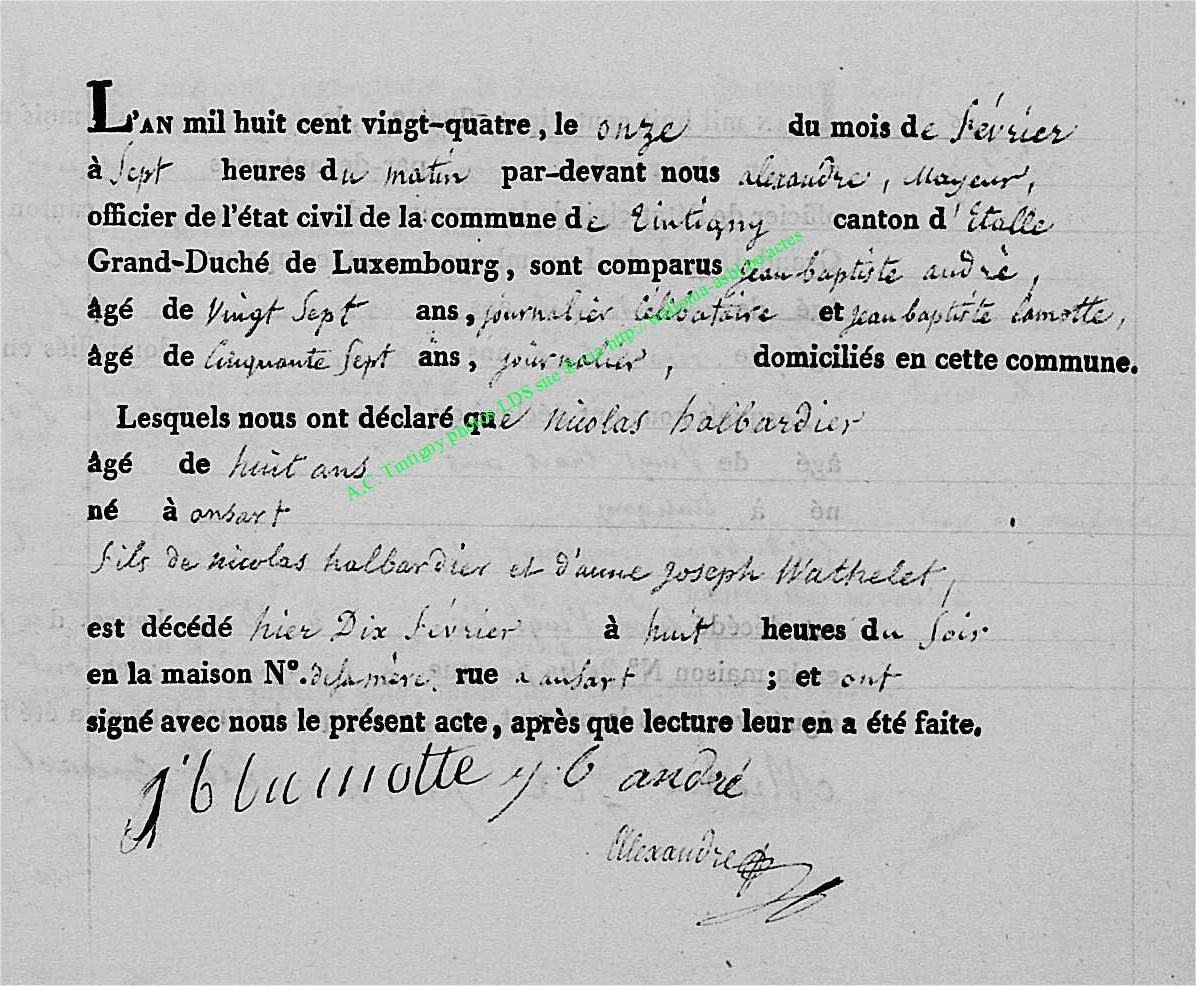 L'AN mil huit cent vingt-quatre, le onze du mois de Février
à Sept heures du matin par-devant nous alexandre, Mayeur,
officier de l'état civil de la commune de Tintigny canton d'Etalle
Grand-Duché de Luxembourg, sont comparus jean baptiste andrè,
âgé de Vingt Sept ans, journalier célibataire et jean baptiste lamotte,
âgé de Cinquante Sept ans, journalier, domiciliés en cette commune.
Lesquels nous ont déclaré que nicolas halbardier
âgé de huit ans
né à ansart
fils de nicolas halbardier et d'anne joseph Wathelet,
est décédé hier Dix Février à huit heures du Soir
en la maison N°. de sa mère, rue a ansart ; et ont
signé avec nous le présent acte, après que lecture leur en a été faite.
j b lamotte j. b andré
Alexandre
A.C. Tintigny photos LDS site @ via http://wallonia-asbl.be/actes